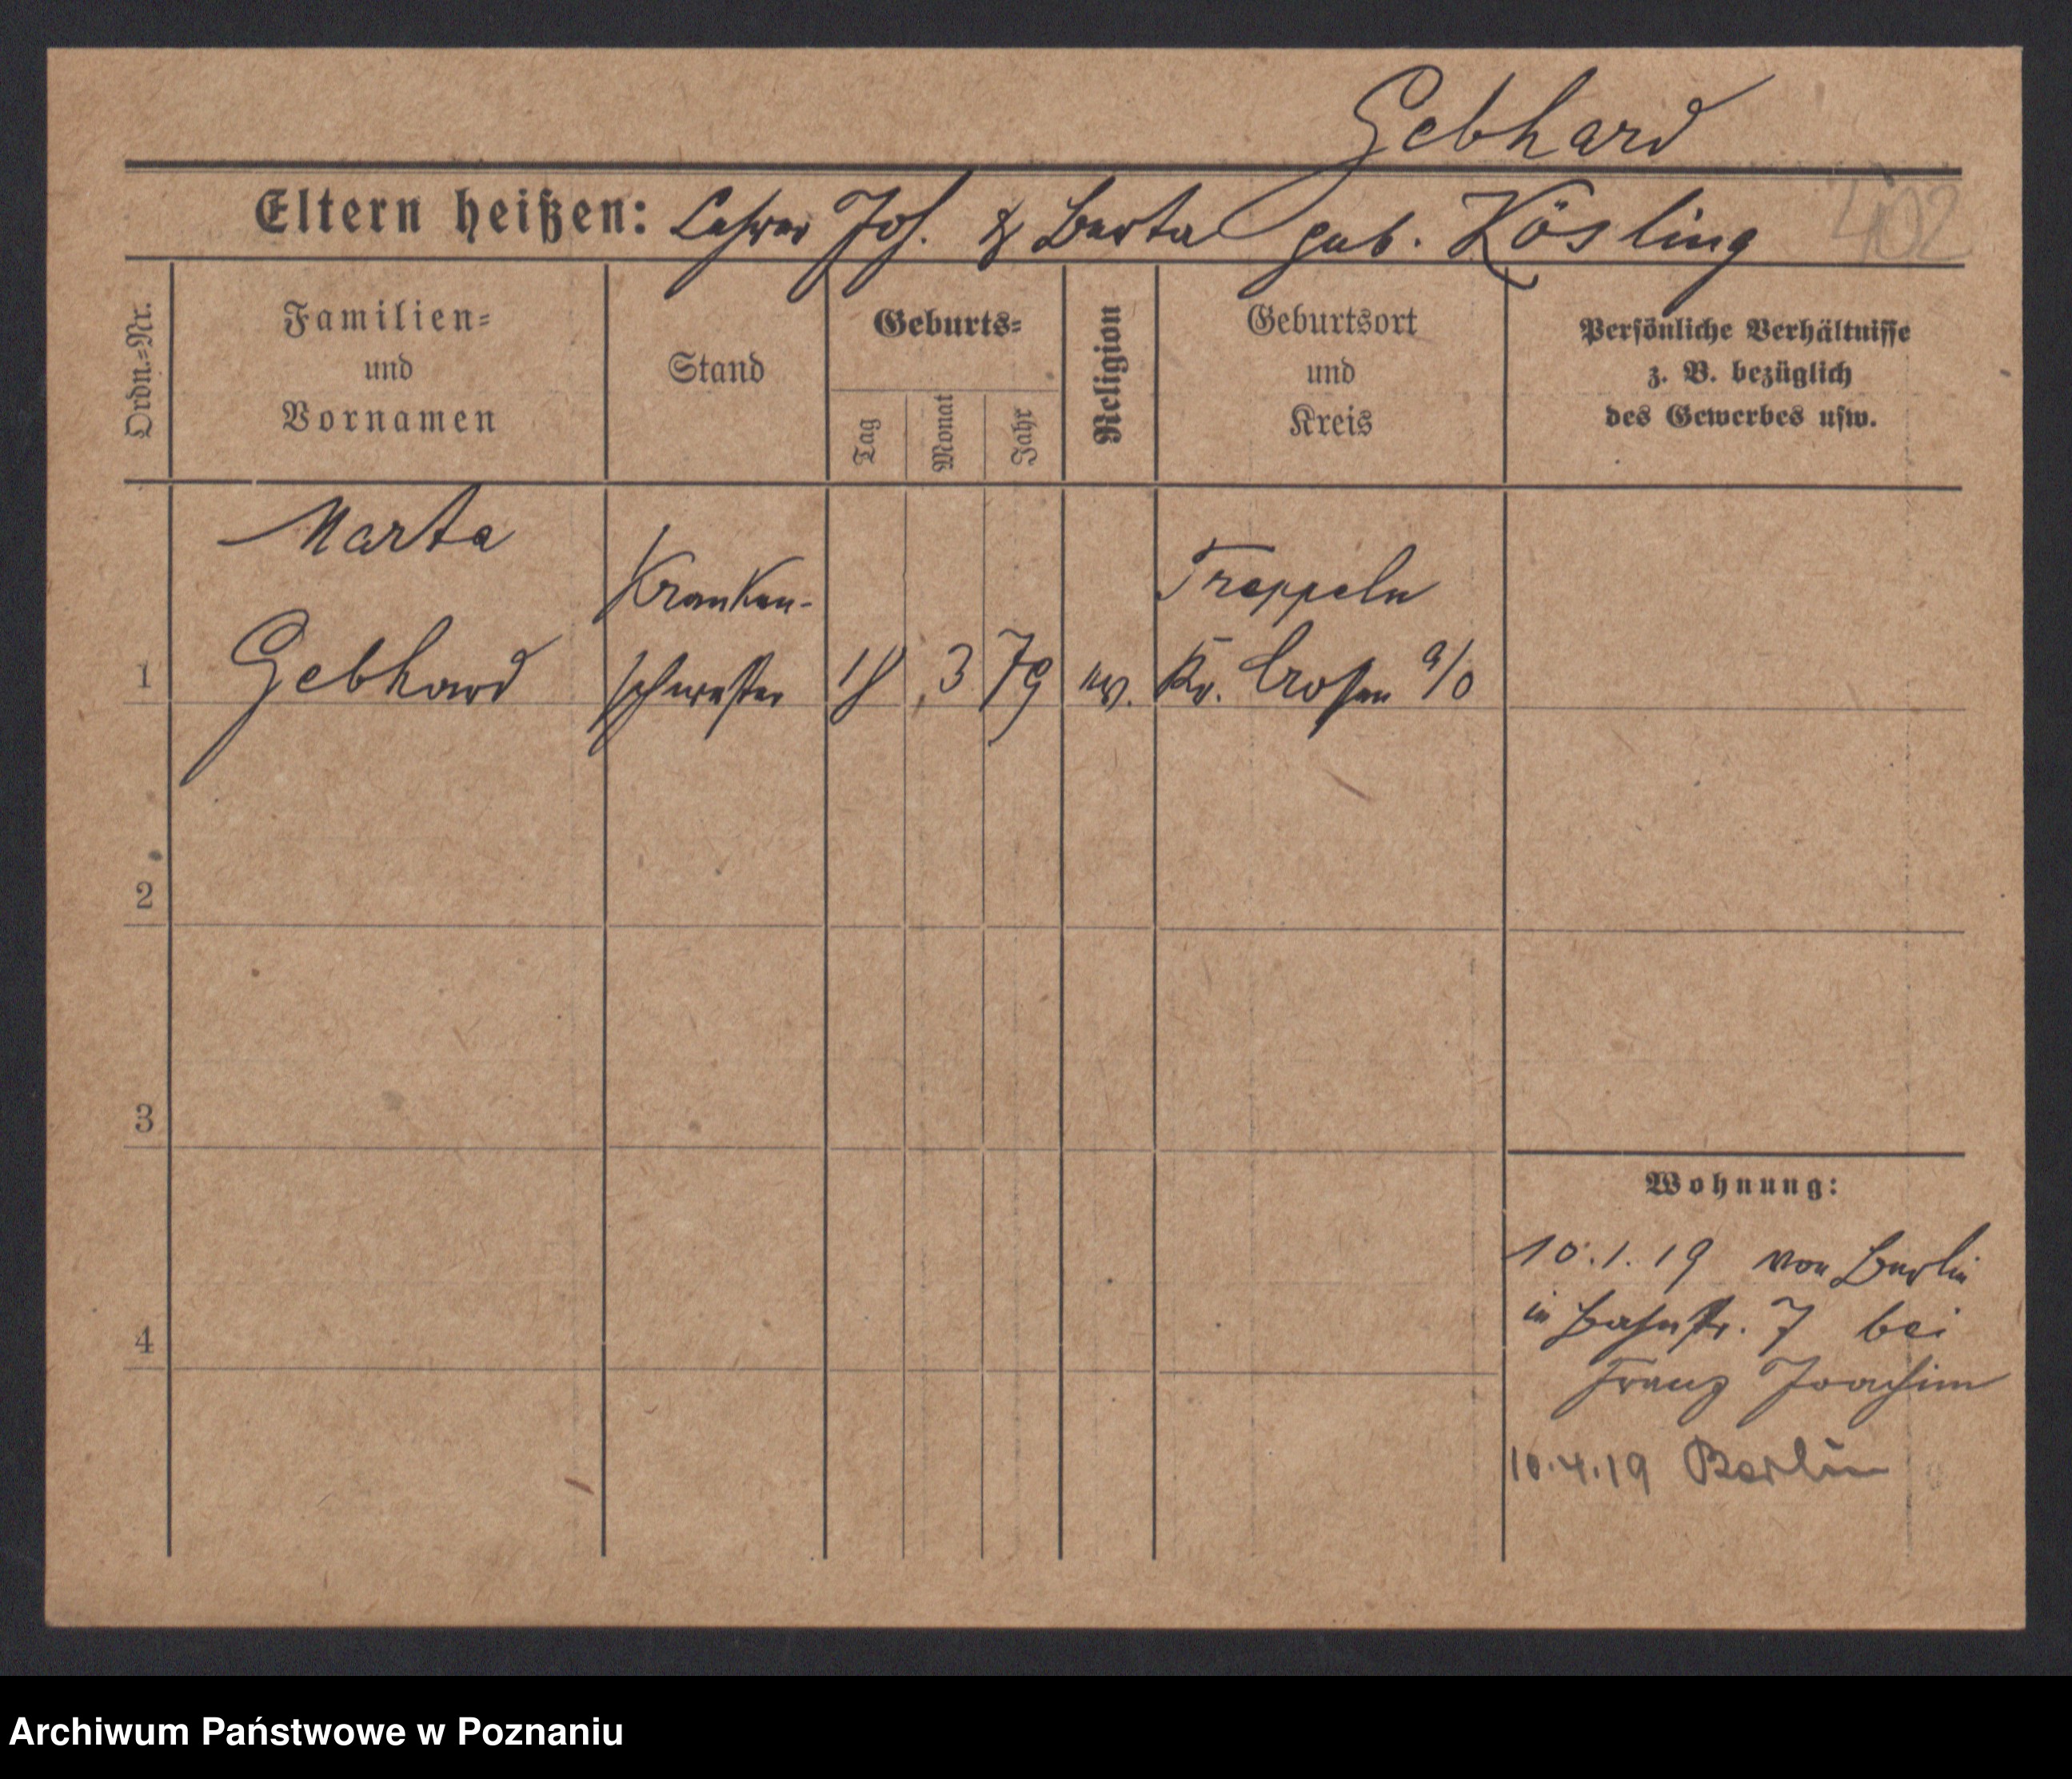 Gebhard
Eltern heißen: Lehrer Joh. & Berta geb. Kösling
402
Ordn.-Nr.
Familien-
und
Vornamen
Stand
Geburts-
Tag
Monat
Jahr
Religion
Geburtsort
und
Kreis
Persönliche Verhältnisse
z. B. bezüglich
des Gewerbes usw.
Marta
Gebhard
Kranken-
schwester
18 3 79 ev.
Treppeln
Kr. Crossen a/O
1
2
3
4
Wohnung:
10.1.19 von Berlin
in Bahnstr. 7 bei
Franz Joachim
10.4.19 Berlin
Archiwum Państwowe w Poznaniu